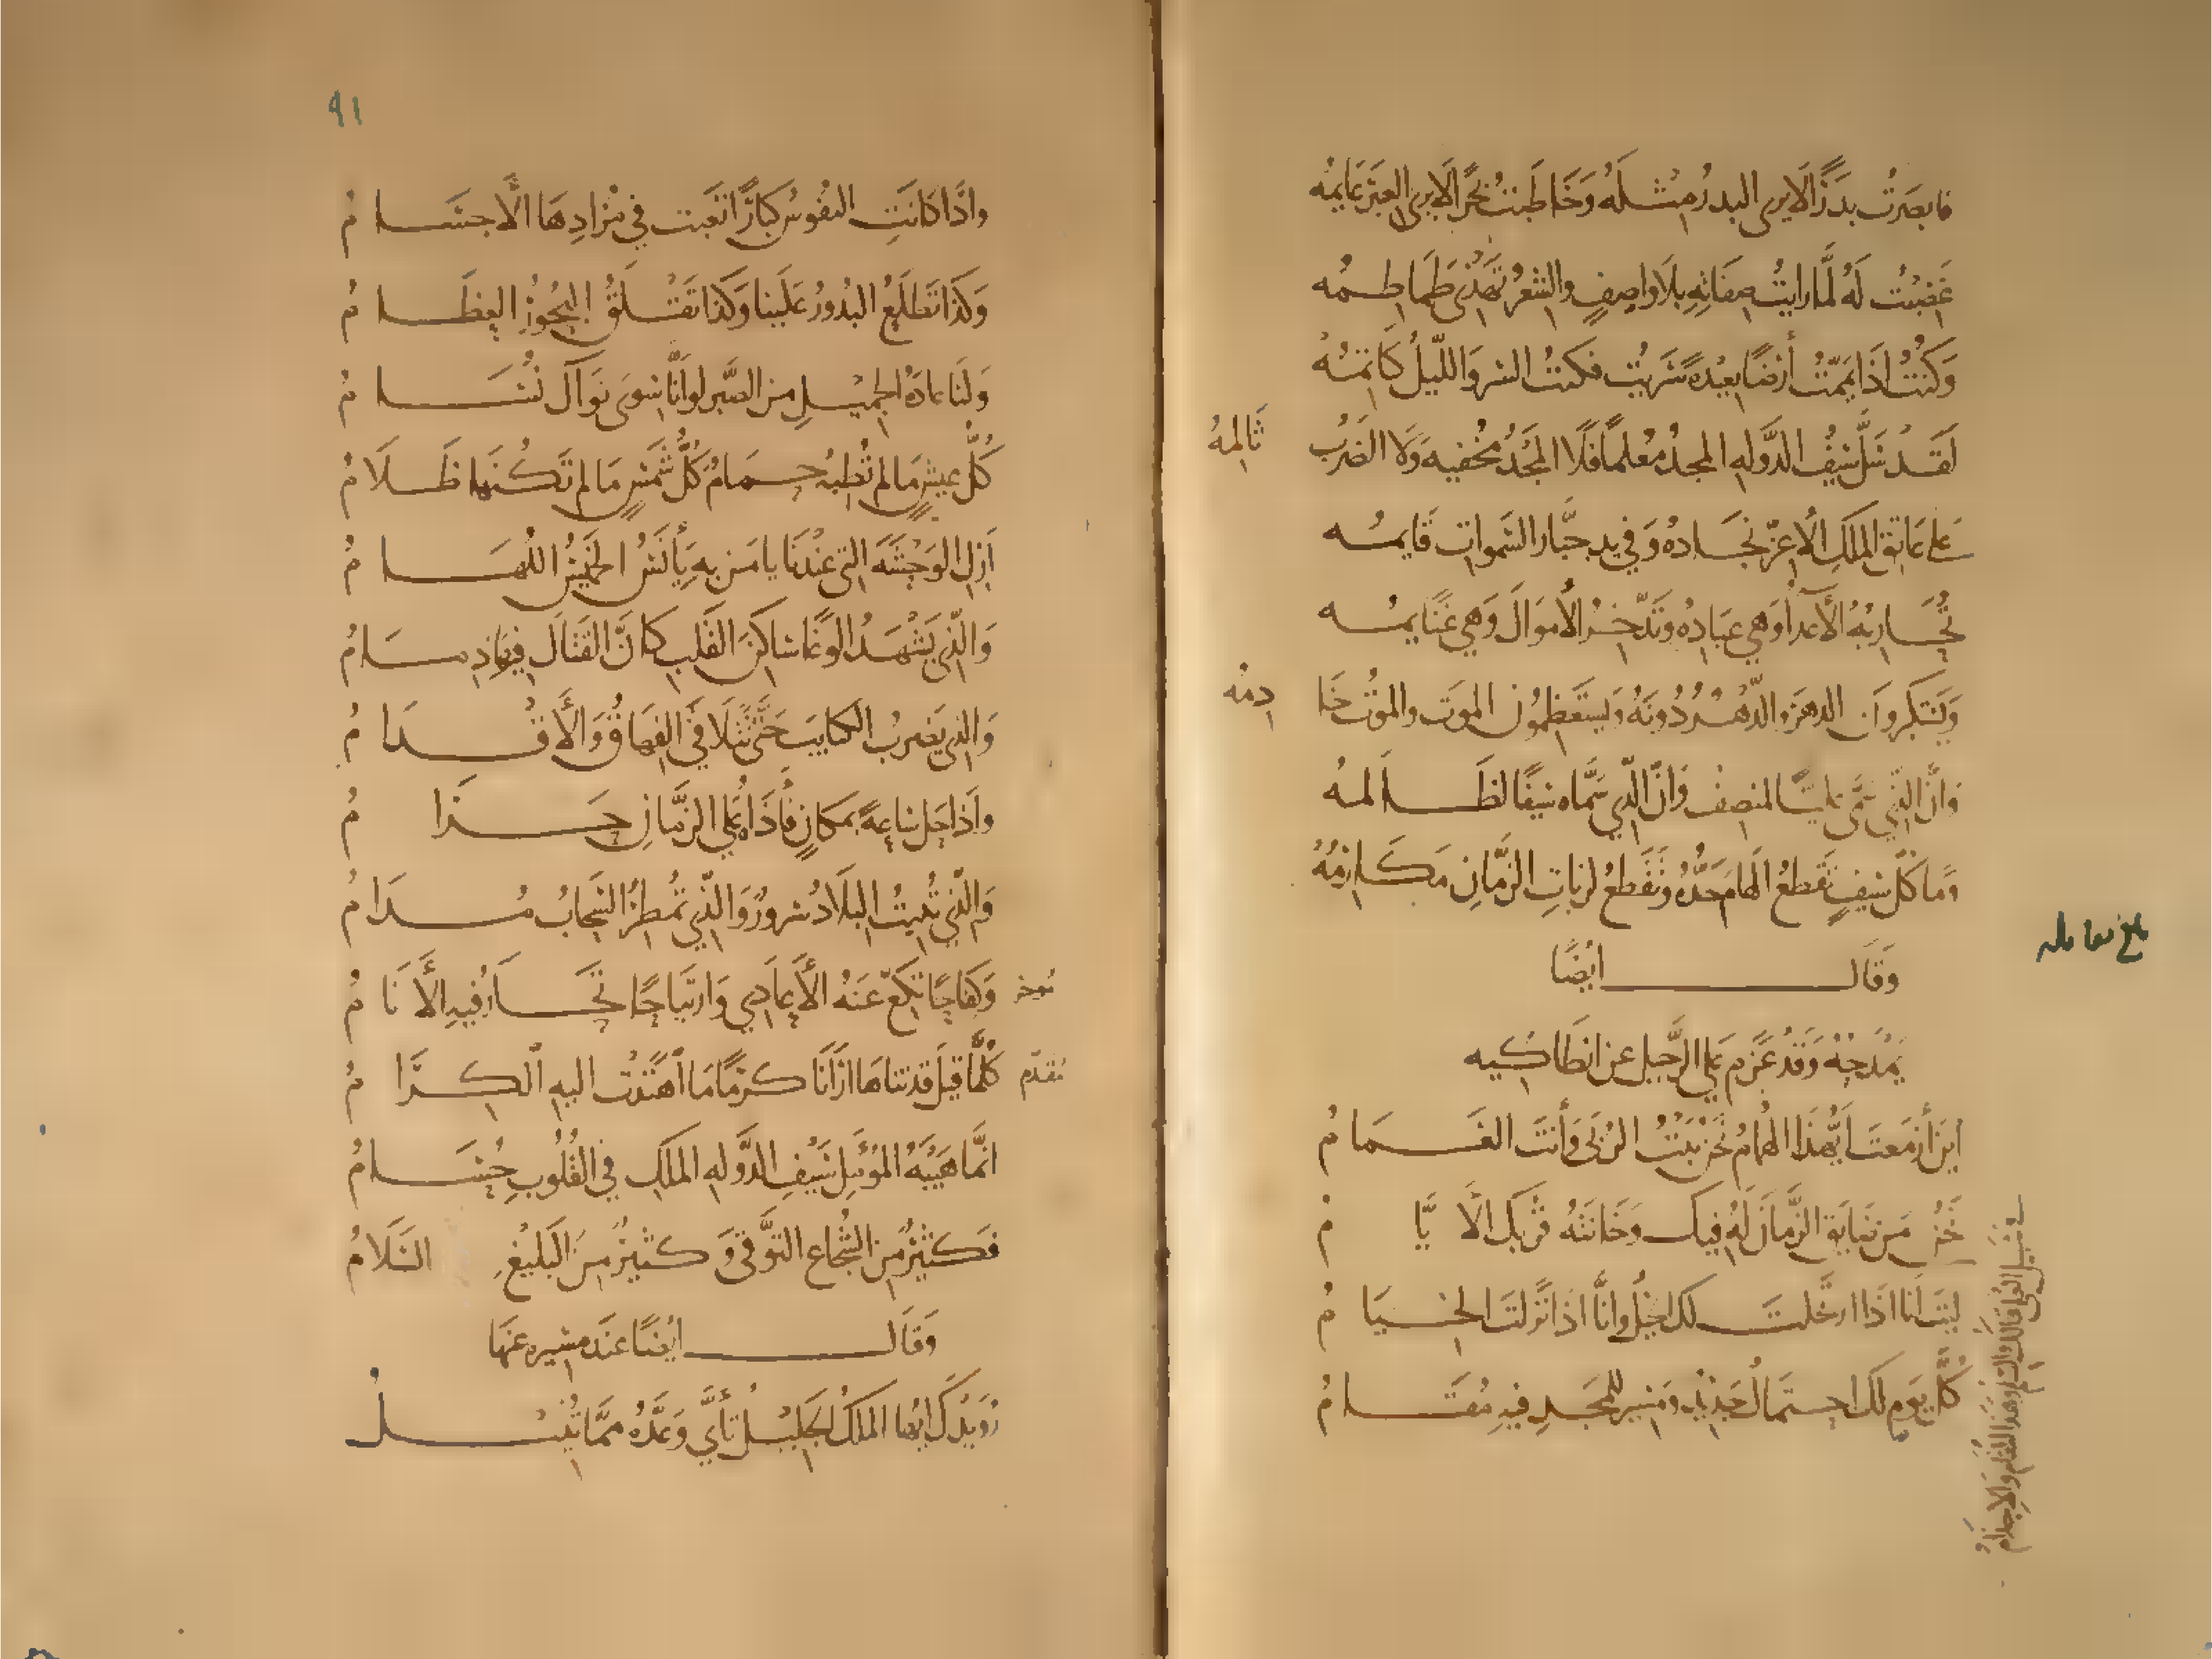 فابصرتُ بدرًا لا يرى البدرُ مثلَهُ وَخَاطَبتُ بحرًا لا يرى العِبرَ عايمُه
غَضِبْتُ لَهُ لَمَّا رايتُ صِفَاتِهِ بِلَا واصِفٍ والشعرُ تَهْذي طَمَاطِمُه
وَكُنْتُ اذَا يَمَّمْتُ أرضًا بعيْدةً سَرَيتُ فكنتُ السر وَالليْلُ كَاتِمُهْ
لَقَد سَلَّ سَيْفُ الدَّولهِ المجدُ مُعلمًا فَلَا المَجْدُ مُخْفيه وَلَا الضَرْبُ ثَالِمهُ
عَلى عَاتق المَلكِ الأعزّ نجَادهُ وَفي يدِ جبَّار السَّمواتِ قَايمُه
تُحَاربُهُ الأَعدآ وَهي عِبَادهُ وتَدّخرُ الأموَالَ وَهي غَنَايمُه
وَيَستكبرونَ الدهرَ والدّهْرُ دُونَهُ وَيستَعظمُونَ الموتَ والموتُ خَادِمُه
وَانَّ الذي سَمَّى عليًّا لمنصفُ وَانّ الّذي سَمَّاه سَيفًا لظَالمهُ
وَما كلّ سَيفٍ تَقطعُ الهامَ حَدُّهُ وتَقطعُ لزباتِ الزَّمانِ مَكَارمُهُ
وَقَالـــ ايْضًا
يَمْدَحُهُ وَقَدْ عَزَم عَلى الرَّحيل عن انطَاكيه
ايَنَ أزمَعتَ أَيُّهَذَا الهُمَامُ نَحنُ نَبْتُ الرُبى وَأنتَ الغَمَامُ
نَحْنُ مَن ضَايَق الزَّمانَ لَهُ فيكَ وَخَانتهُ قربكَ الأيَّامُ
في سَبيل العُلَى قتالكَ والسِّلمُ وَهَذا المُقَامُ وَالاجذَامُ
ليْتَ أَنا اذَا ارتَحَلتَ لكَ الخيلُ وَأنَّا اذا نَزلتَ الخيَامُ
كلَّ يَومٍ لكَ احتمَالٌ جَديدٌ ومَسيرٌ للمَجدِ فيهِ مُقَامُ
٩١
واذَا كَانَتِ النفُوسُ كبَارًا تَعَبت في مُرَادِهَا الأَجسَامُ
وَكَذَا تَطلُعُ البُدورُ عَلَينا وَكَذا تَقلَقُ البُحُورُ العِظَامُ
وَلَنا عادَةُ الجميْلِ من الصَّبرِ لو أنَّا سِوَى نَوَاكَ نُسَامُ
كُلُّ عيشٍ مَا لم تُطبهُ حِمامُ كلُّ شَمسٍ مَا لم تَكُنهَا ظَلَامُ
أزِلِ الوَحْشَةَ التي عنْدَنَا يا مَن بهِ يَأنَسُ الخَمِيسُ اللُهَامُ
وَالّذي يَشْهَدُ الوَغَا سَاكنَ القَلبِ كانَّ القتَالَ فيهَا ذِمَامُ
وَالذي يَضربُ الكتايبَ حَتَّى تَتَلَاقَى الفِهَاقُ وَالأَقْدَامُ
واذَا حَل سَاعةً بمكانٍ فأذَاهُ عَلى الزَّمانِ حَرَامُ
وَالّذي تُنبِتُ البلَادُ سُرورٌ وَالّذي تُمطرُ السَّحابُ مُدَامُ
موخر وَكفاحًا تَكعّ عَنهُ الأَعادي وَارتيَاحًا تحَارُ فيهِ الأنَامُ
مقدّم كُلَّما قيلَ قد تناهَا أرَانَا كرَمًا مَا اهتَدَتْ اليهِ الكِرَامُ
انَّما هَيبَةُ المُؤمَّلِ سَيْفِ الدَّوله الملكِ في القُلُوبِ حُسَامُ
فكَثيْرٌ مِنَ الشّجاعِ التوَّقي وَكثيْرٌ مِنَ البَليغِ السَّلامُ
وَقَالـــ ايْضًا عندَ مسيره عنهَا
رُوَيْدكَ ايّها الملكُ الجَليْلُ تَأيَّ وَعُدَّهُ ممّا تُنيْلُ